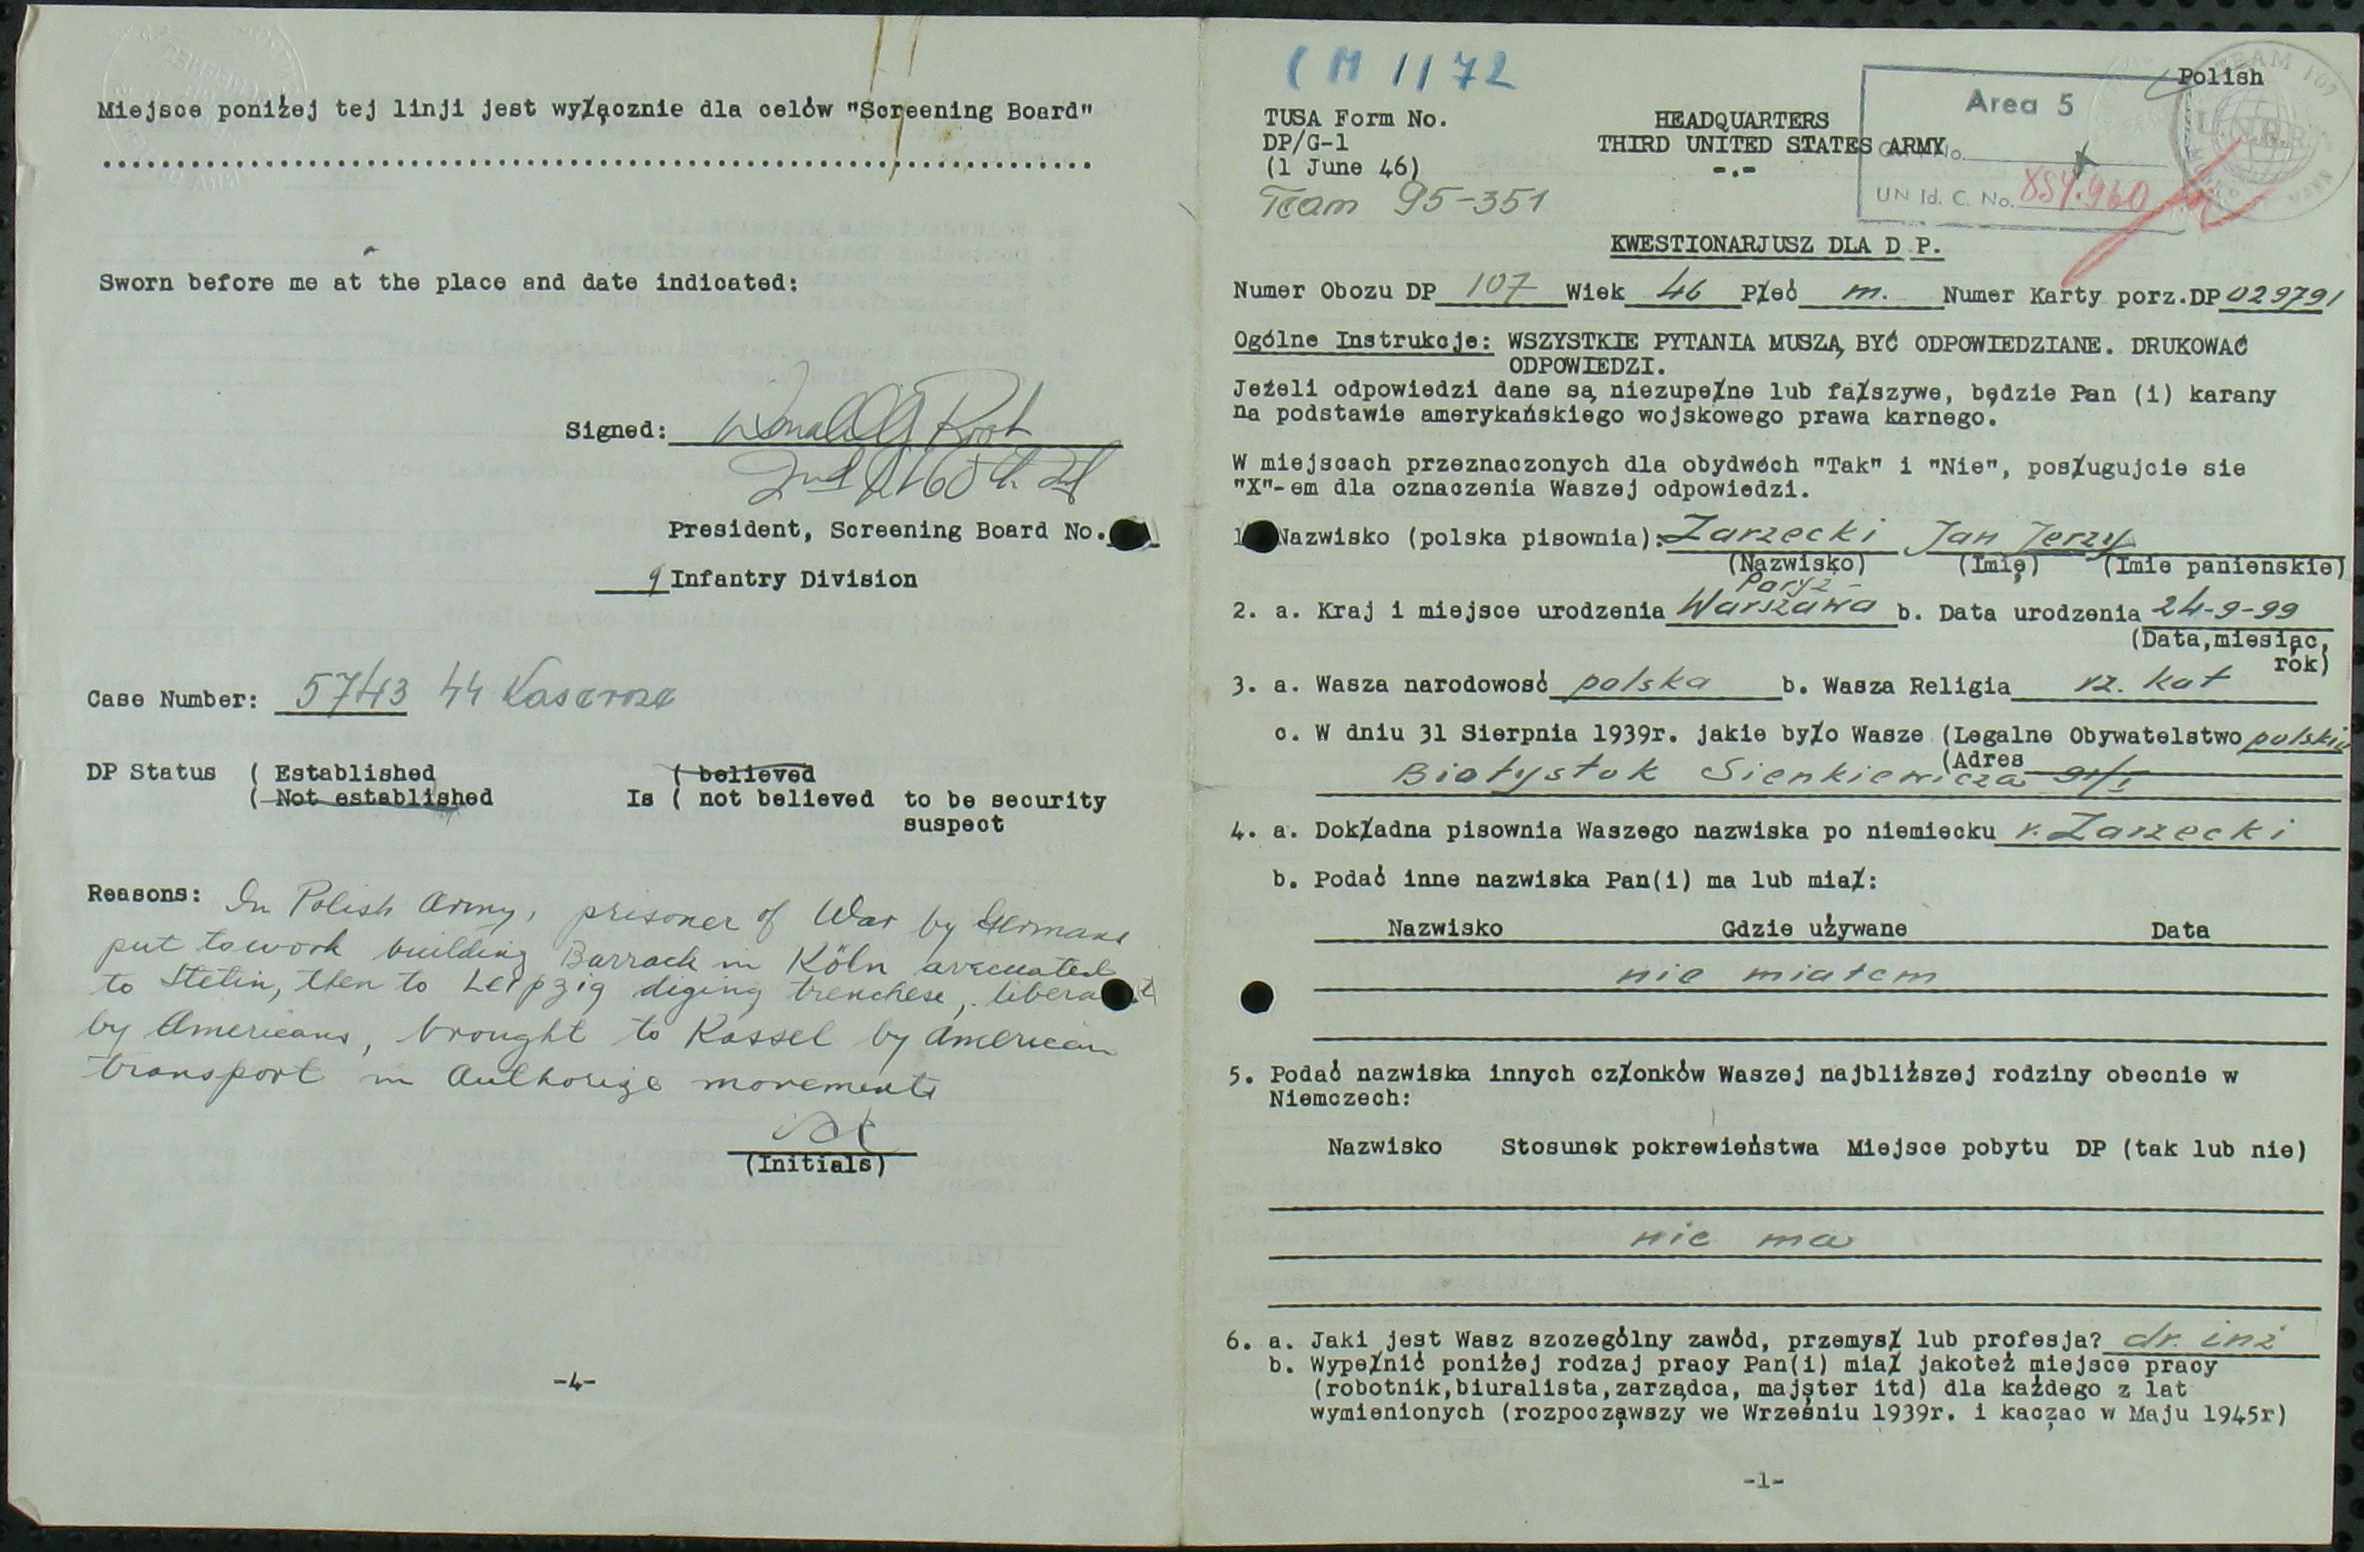 Miejsce poniżej tej linji jest wyłącznie dla celów "Screening Board"
Sworn before me at the place and date indicated:
Signed:
President, Screening Board No.
9 Infantry Division
Case Number: 5743 44
DP Status ( Established ( believed
( Not established Is ( not believed to be security
suspect
Reasons: In Polish Army, prisoner of War by Germans
put to work building Barrack in Köln avecuated
to Stetin, then to Leipzig diging trenchese,
by Americans, brought to Kassel by American
transport in Authorize movements
(Initials)
-4-
CM 1172
Polish
TUSA Form No.
DP/G-1
(1 June 46)
Team 95-351
HEADQUARTERS
THIRD UNITED STATES ARMY
-.-
Area 5
UN Id. C. No. 854.960
KWESTIONARJUSZ DLA D P.
Numer Obozu DP 107 Wiek 46 Płeć m. Numer Karty porz.DP 029791
Ogólne Instrukcje: WSZYSTKIE PYTANIA MUSZĄ BYĆ ODPOWIEDZIANE. DRUKOWAĆ
ODPOWIEDZI.
Jeżeli odpowiedzi dane są niezupełne lub fałszywe, będzie Pan (i) karany
na podstawie amerykańskiego wojskowego prawa karnego.
W miejscach przeznaczonych dla obydwóch "Tak" i "Nie", posługujcie sie
"X"-em dla oznaczenia Waszej odpowiedzi.
Nazwisko (polska pisownia): Zarzecki Jan Jerzy
(Nazwisko) (Imię) (Imie panienskie)
Paryż
2. a. Kraj i miejsce urodzenia Warszawa b. Data urodzenia 24-9-99
(Data,miesiąc,
rók)
3. a. Wasza narodowość polska b. Wasza Religia rz. kat
c. W dniu 31 Sierpnia 1939r. jakie było Wasze (Legalne Obywatelstwo polskie
(Adres
Białystok Sienkiewicza
4. a. Dokładna pisownia Waszego nazwiska po niemiecku v. Zarzecki
b. Podać inne nazwiska Pan(i) ma lub miał:
Nazwisko Gdzie używane Data
nie miałem
5. Podać nazwiska innych członków Waszej najbliższej rodziny obecnie w
Niemczech:
Nazwisko Stosunek pokrewieństwa Miejsce pobytu DP (tak lub nie)
nie ma
6. a. Jaki jest Wasz szczególny zawód, przemysł lub profesja? dr. inż
b. Wypełnić poniżej rodzaj pracy Pan(i) miał jakoteż miejsce pracy
(robotnik,biuralista,zarządca, majster itd) dla każdego z lat
wymienionych (rozpocząwszy we Wrześniu 1939r. i kacząc w Maju 1945r)
-1-